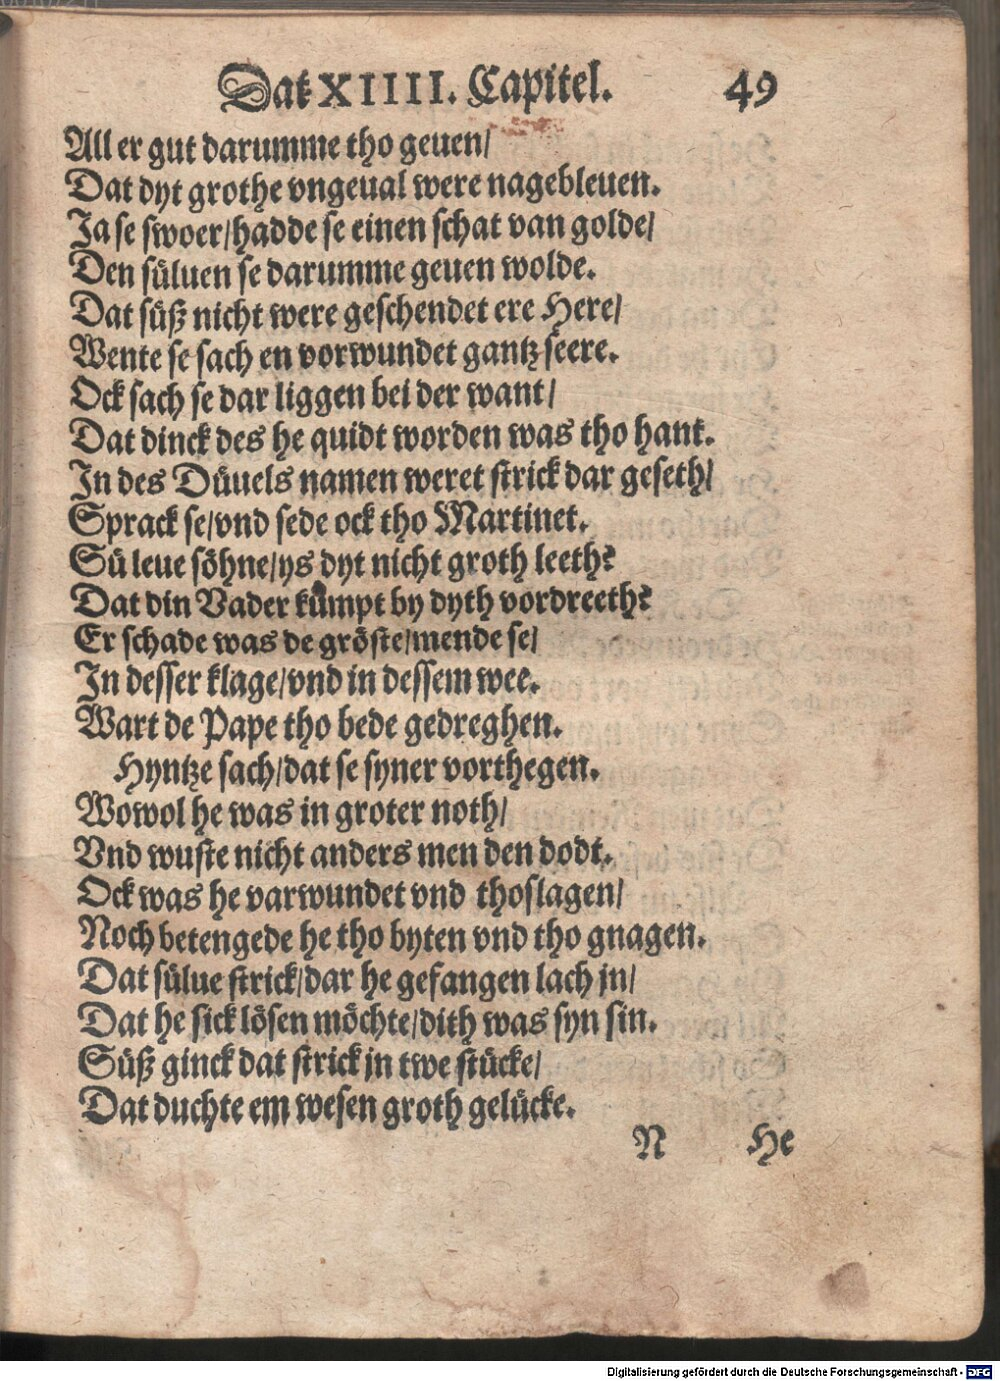 Dat XIIII. Capitel. 49
All er gut darumme tho geuen/
Dat dyt grothe vngeual were nagebleuen.
Ja se swoer/hadde se einen schat van golde/
Den süluen se darumme geuen wolde.
Dat süß nicht were geschendet ere Here/
Wente se sach en vorwundet gantz seere.
Ock sach se dar liggen bei der want/
Dat dinck des he quidt worden was tho hant.
In des Düuels namen weret strick dar geseth/
Sprack se/vnd sede ock tho Martinet.
Sü leue söhne/ys dyt nicht groth leeth?
Dat din Vader kümpt by dyth vordreeth?
Er schade was de gröste/mende se/
In desser klage/vnd in dessem wee.
Wart de Pape tho bede gedreghen.
Hyntze sach/dat se syner vorthegen.
Wowol he was in groter noth/
Vnd wuste nicht anders men den dodt.
Ock was he varwundet vnd thoslagen/
Noch betengede he tho byten vnd tho gnagen.
Dat sülue strick/dar he gefangen lach jn/
Dat he sick lösen möchte/dith was syn sin.
Süß ginck dat strick jn twe stücke/
Dat duchte em wesen groth gelücke.
N He
Digitalisierung gefördert durch die Deutsche Forschungsgemeinschaft - DFG